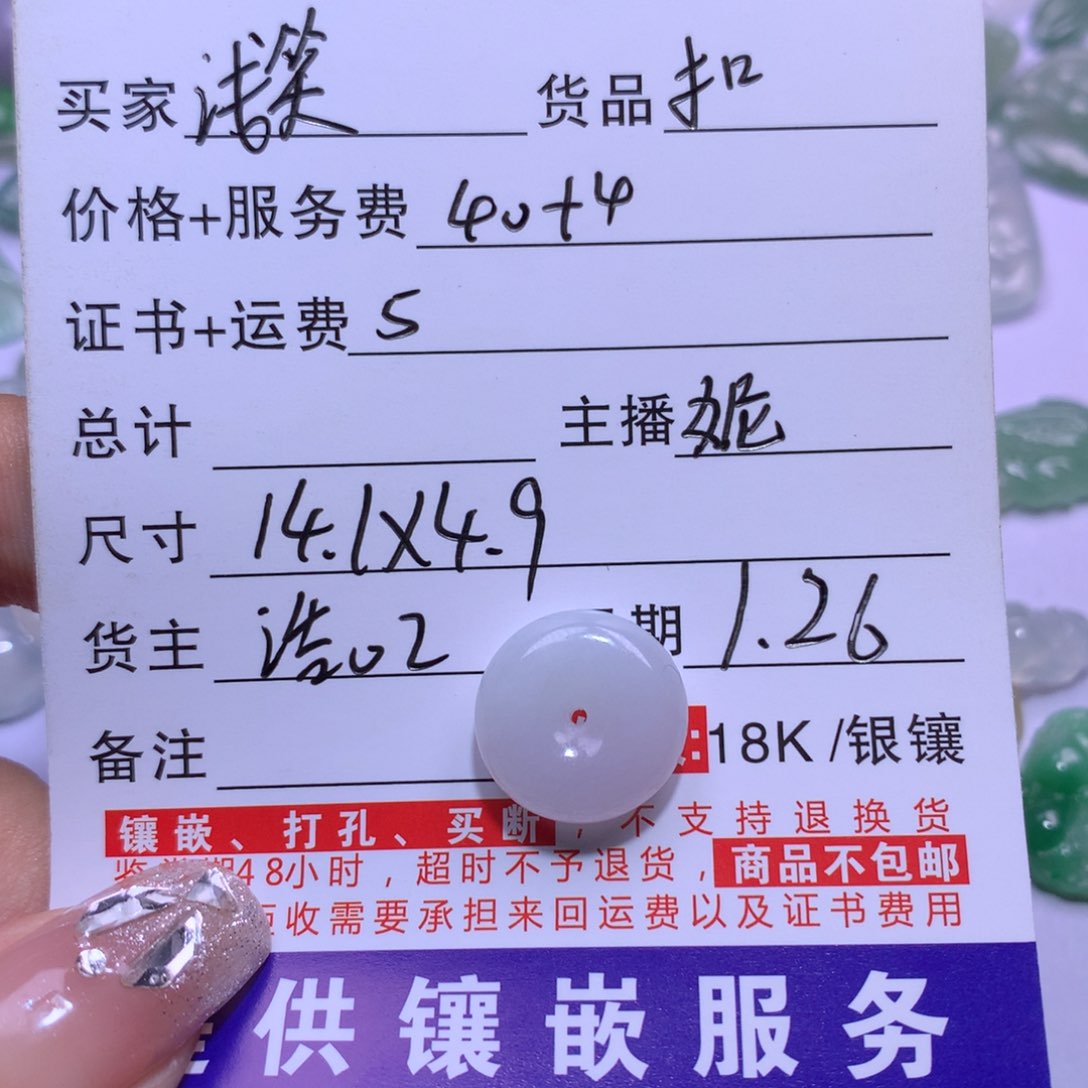 买家 浅笑 货品 扣
价格+服务费 40+4
证书+运费 5
总计 主播 妮
尺寸 14.1X4.9
货主 浩02 期 1.26
备注 :18K /银镶
镶嵌、打孔、买断,不支持退换货
48小时,超时不予退货,商品不包邮
收需要承担来回运费以及证书费用
供镶嵌服务